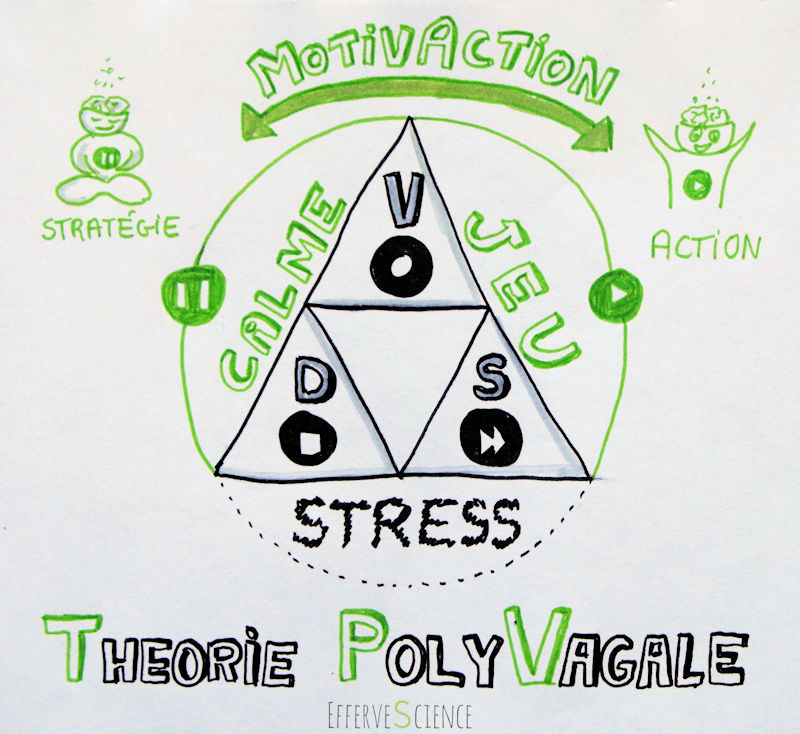 MOTIVACTION
STRATÉGIE
ACTION
CALME
JEU
V
D
S
STRESS
THEORIE POLYVAGALE
EFFERVESCIENCE